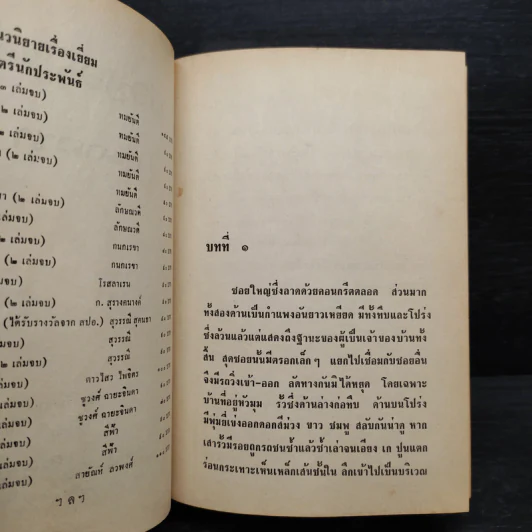 นวนิยายเรื่องเยี่ยม
ตรีนักประพันธ์
๓ เล่มจบ)
๒ เล่มจบ) ทมยันตี
๒ เล่มจบ) ทมยันตี
(๒ เล่มจบ) ทมยันตี
ทมยันตี
า (๒ เล่มจบ) ทมยันตี
เล่มจบ) ลักษณวดี
๒ เล่มจบ) ลักษณวดี
(๒ เล่มจบ) กนกเรขา
กนกเรขา
เล่มจบ) โรสลาเรน
(๒ เล่มจบ) ก. สุรางคนางค์
(ได้รับรางวัลจาก สปอ.) สุวรรณี สุคนธา
(๒ เล่มจบ) สุวรรณี
เล่มจบ) สุวรรณี
๒ เล่มจบ)
เล่มจบ) ชูวงศ์ ฉายะจินดา
เล่มจบ) ชูวงศ์ ฉายะจินดา
เล่มจบ) สีฟ้า
สีฟ้า
บทที่ ๑
ซอยใหญ่ซึ่งลาดด้วยคอนกรีตตลอด ส่วนมาก
ทั้งสองด้านเป็นกำแพงอันยาวเหยียด มีทั้งทึบและโปร่ง
ซึ่งล้วนแล้วแต่แสดงถึงฐานะของผู้เป็นเจ้าของบ้านทั้ง
สิ้น สุดซอยนั้นมีตรอกเล็กๆ แยกไปเชื่อมกับซอยอื่น
จึงมีรถวิ่งเข้า-ออก ลัดทางกันมิได้หยุด โดยเฉพาะ
บ้านที่อยู่หัวมุม รั้วซึ่งด้านล่างก่อทึบ ด้านบนโปร่ง
มีพุ่มยี่เข่งออกดอกสีม่วง ขาว ชมพู สลับกันน่าดู หาก
เสารั้วมีรอยถูกรถชนซ้ำแล้วซ้ำเล่าจนเอียง เก ปูนแตก
ร่อนกระเทาะเห็นเหล็กเส้นชั้นใน ลึกเข้าไปเป็นบริเวณ